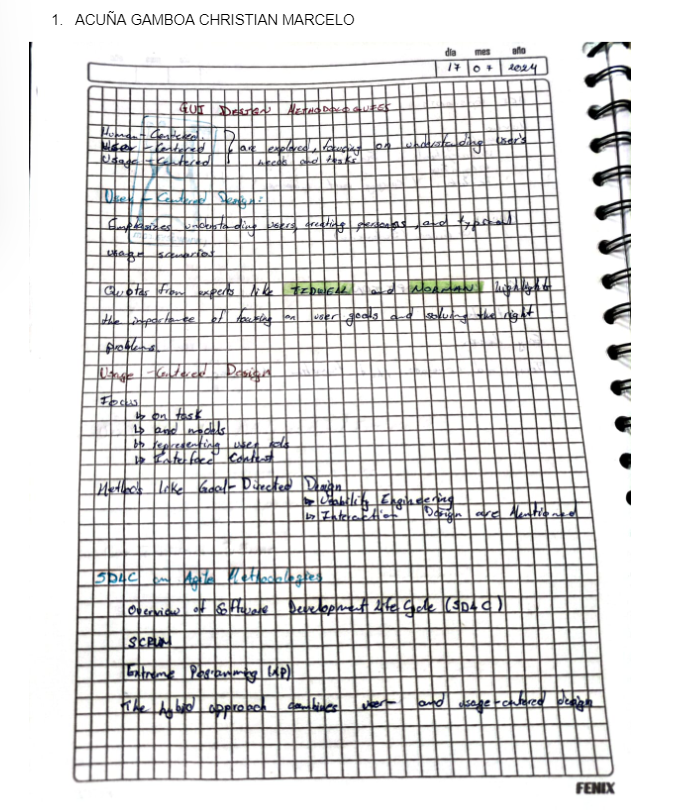 1. ACUÑA GAMBOA CHRISTIAN MARCELO
día mes año
17 07 2024
GUI DESIGN METHODOLOGUIES
Human - Centered
User - Centered
Usage - Centered
are explored, focusing on understanding user's
needs and tasks
User - Centered Design:
Emphasizes understanding users, creating personas, and typical
usage scenarios
Quotes from experts like TIDWELL and NORMAN highlight
the importance of focusing on user goals and solving the right
problems.
Usage - Centered Design
Focus
↳ on task
↳ and models
↳ representing user
↳ Interface Content
Methods like Goal - Directed Design
↳ Usability Engineering
↳ Interaction Design are Mentioned
SDLC in Agile Methodologies
Overview of Software Development Life Cycle (SDLC)
SCRUM
Extreme Programming (XP)
The hybrid approach combines user- and usage-centered design
FENIX